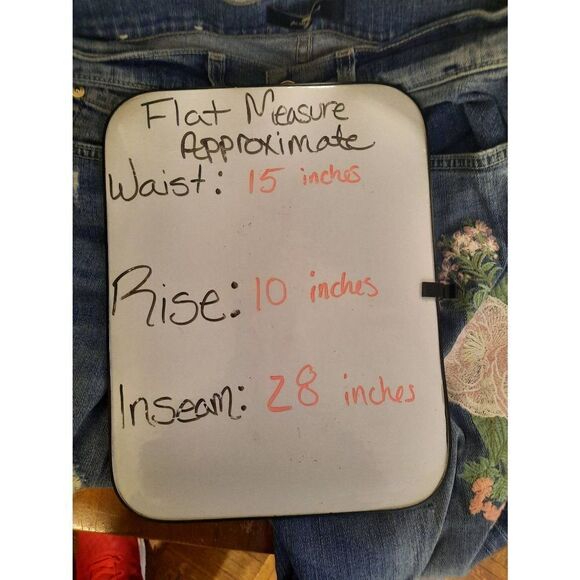 Flat Measure
Approximate
Waist: 15 inches
Rise: 10 inches
Inseam: 28 inches